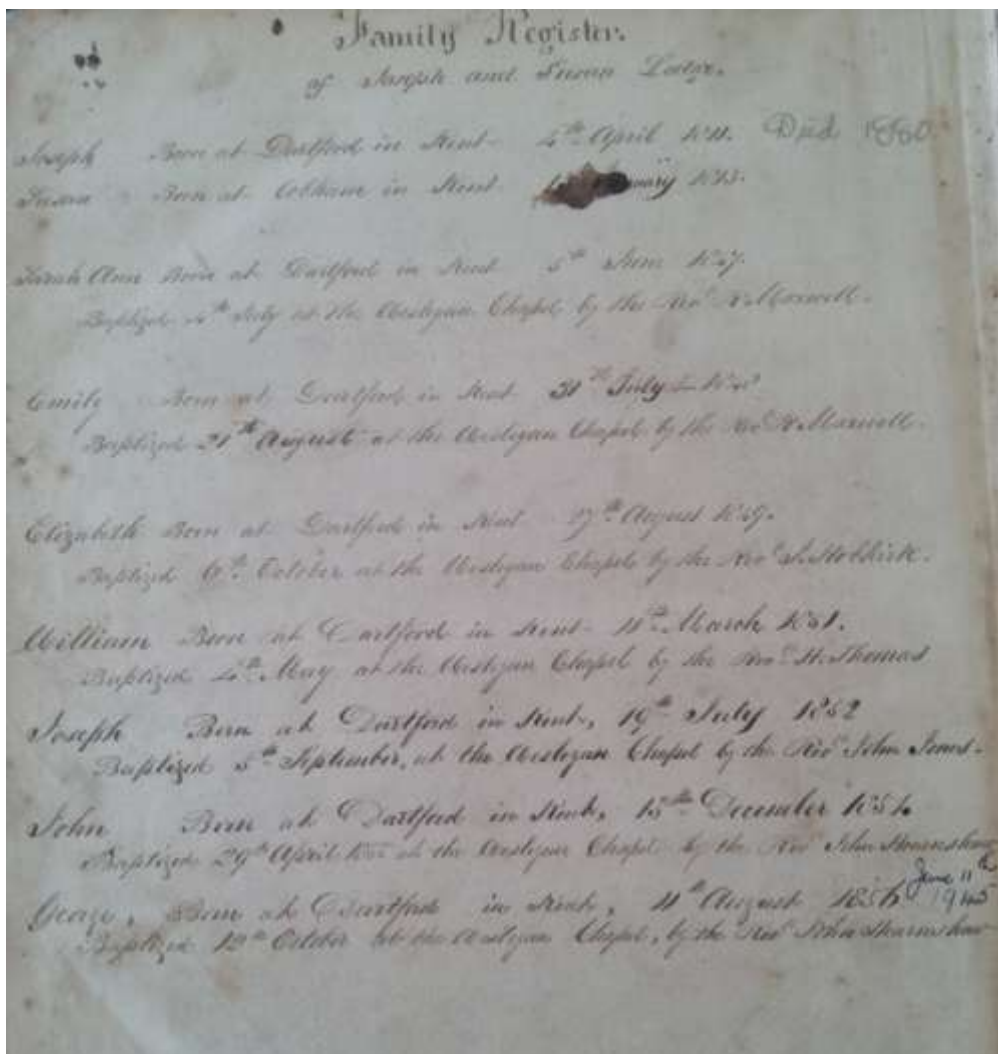 Family Register.
of Joseph and Susan
Joseph Born at Dartford in Kent 4th April 1811. Died 1880
Susan Born at Cobham in Kent 1813.
Sarah Ann Born at Dartford in Kent 5th June
Baptized 4th July at the Wesleyan Chapel by the Revd Maxwell.
Emily Born at Dartford in Kent 31st July
Baptized 21st August at the Wesleyan Chapel by the Revd Maxwell.
Elizabeth Born at Dartford in Kent 17th August 1849.
Baptized October at the Wesleyan Chapel by the Revd
William Born at Dartford in Kent 11th March 1851.
Baptized 4th May at the Wesleyan Chapel by the Revd H. Thomas
Joseph Born at Dartford in Kent, 19th July 1852
Baptized 5th September, at the Wesleyan Chapel by the Revd John Jones.
John Born at Dartford in Kent, 15th December 1854
Baptized 29th April at the Wesleyan Chapel by the Revd John Hearnshaw
June 11th
George, Born at Dartford in Kent, 11th August 1856
Baptized 12th October at the Wesleyan Chapel, by the Revd John Hearnshaw